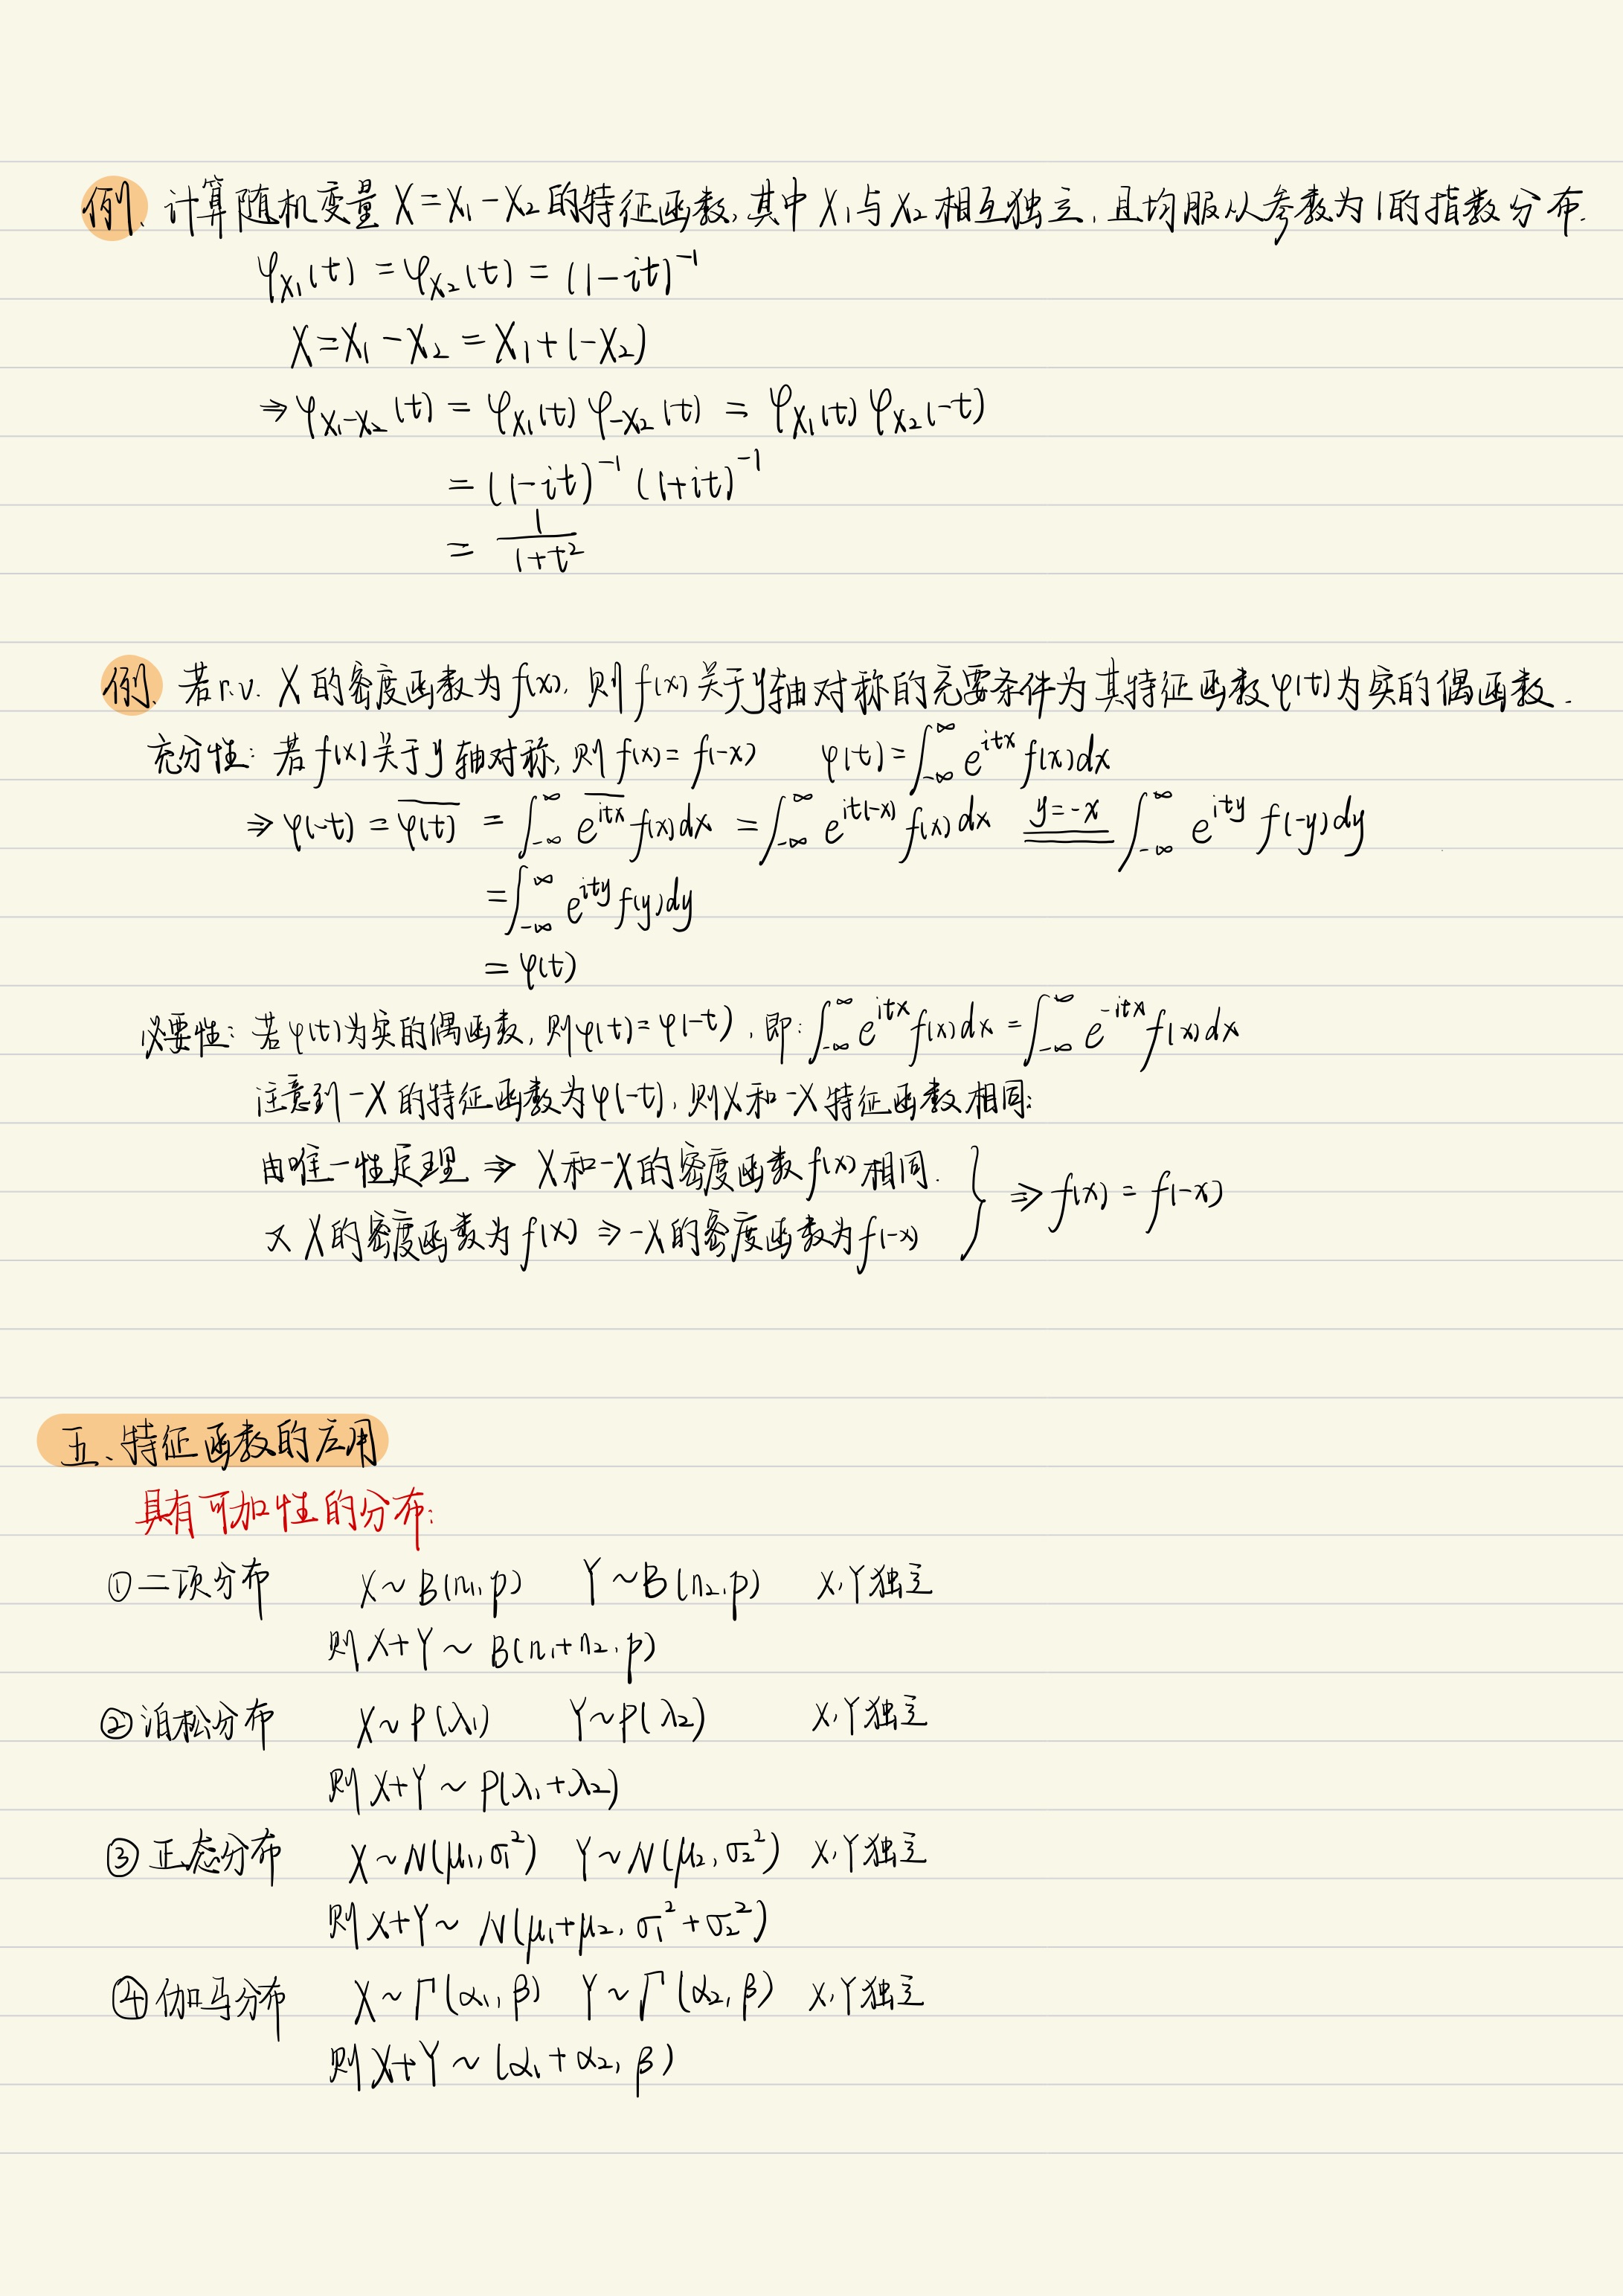 例. 计算随机变量 X=X₁-X₂ 的特征函数, 其中 X₁与 X₂ 相互独立, 且均服从参数为1的指数分布.
φ_{X₁}(t) = φ_{X₂}(t) = (1-it)⁻¹
X=X₁-X₂ = X₁+(-X₂)
⇒ φ_{X₁-X₂}(t) = φ_{X₁}(t) φ_{-X₂}(t) = φ_{X₁}(t) φ_{X₂}(-t)
= (1-it)⁻¹ (1+it)⁻¹
= \frac{1}{1+t²}
例. 若r.v. X 的密度函数为 f(x), 则 f(x) 关于y轴对称的充要条件为其特征函数 φ(t)为实的偶函数.
充分性: 若 f(x) 关于 y 轴对称, 则 f(x) = f(-x) φ(t) = ∫_{-∞}^{∞} e^{itx} f(x)dx
⇒ φ(-t) = \overline{φ(t)} = ∫_{-∞}^{∞} \overline{e^{itx}} f(x)dx = ∫_{-∞}^{∞} e^{it(-x)} f(x)dx \xlongequal{y=-x} ∫_{-∞}^{∞} e^{ity} f(-y)dy
= ∫_{-∞}^{∞} e^{ity} f(y)dy
= φ(t)
必要性: 若 φ(t)为实的偶函数, 则φ(t) = φ(-t), 即: ∫_{-∞}^{∞} e^{itx} f(x)dx = ∫_{-∞}^{∞} e^{-itx} f(x)dx
注意到 -X 的特征函数为 φ(-t), 则X和-X特征函数相同;
由唯一性定理 ⇒ X和-X的密度函数f(x)相同. } ⇒ f(x) = f(-x)
又 X的密度函数为 f(x) ⇒ -X的密度函数为 f(-x)
五、特征函数的应用
具有可加性的分布:
① 二项分布 X~B(n₁,p) Y~B(n₂,p) X,Y独立
则 X+Y ~ B(n₁+n₂,p)
② 泊松分布 X~P(λ₁) Y~P(λ₂) X,Y独立
则 X+Y ~ P(λ₁+λ₂)
③ 正态分布 X~N(μ₁,σ₁²) Y~N(μ₂,σ₂²) X,Y独立
则 X+Y ~ N(μ₁+μ₂, σ₁²+σ₂²)
④ 伽马分布 X~Γ(α₁,β) Y~Γ(α₂,β) X,Y独立
则 X+Y ~ (α₁+α₂, β)